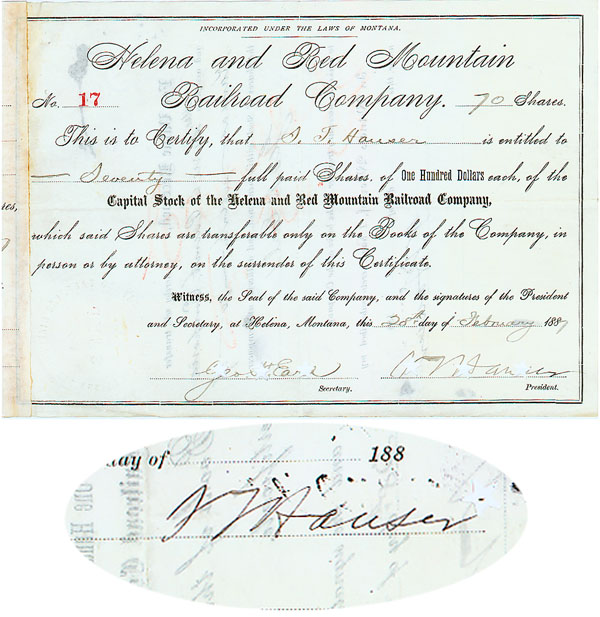 INCORPORATED UNDER THE LAWS OF MONTANA.
Helena and Red Mountain
No. 17 Railroad Company. 70 Shares.
This is to Certify, that S. T. Hauser is entitled to
Seventy full paid Shares, of One Hundred Dollars each, of the
Capital Stock of the Helena and Red Mountain Railroad Company,
which said Shares are transferable only on the Books of the Company, in
person or by attorney, on the surrender of this Certificate.
Witness, the Seal of the said Company, and the signatures of the President
and Secretary, at Helena, Montana, this 28th day of February 1887
Hauser
Secretary. President.
day of 188
Hauser